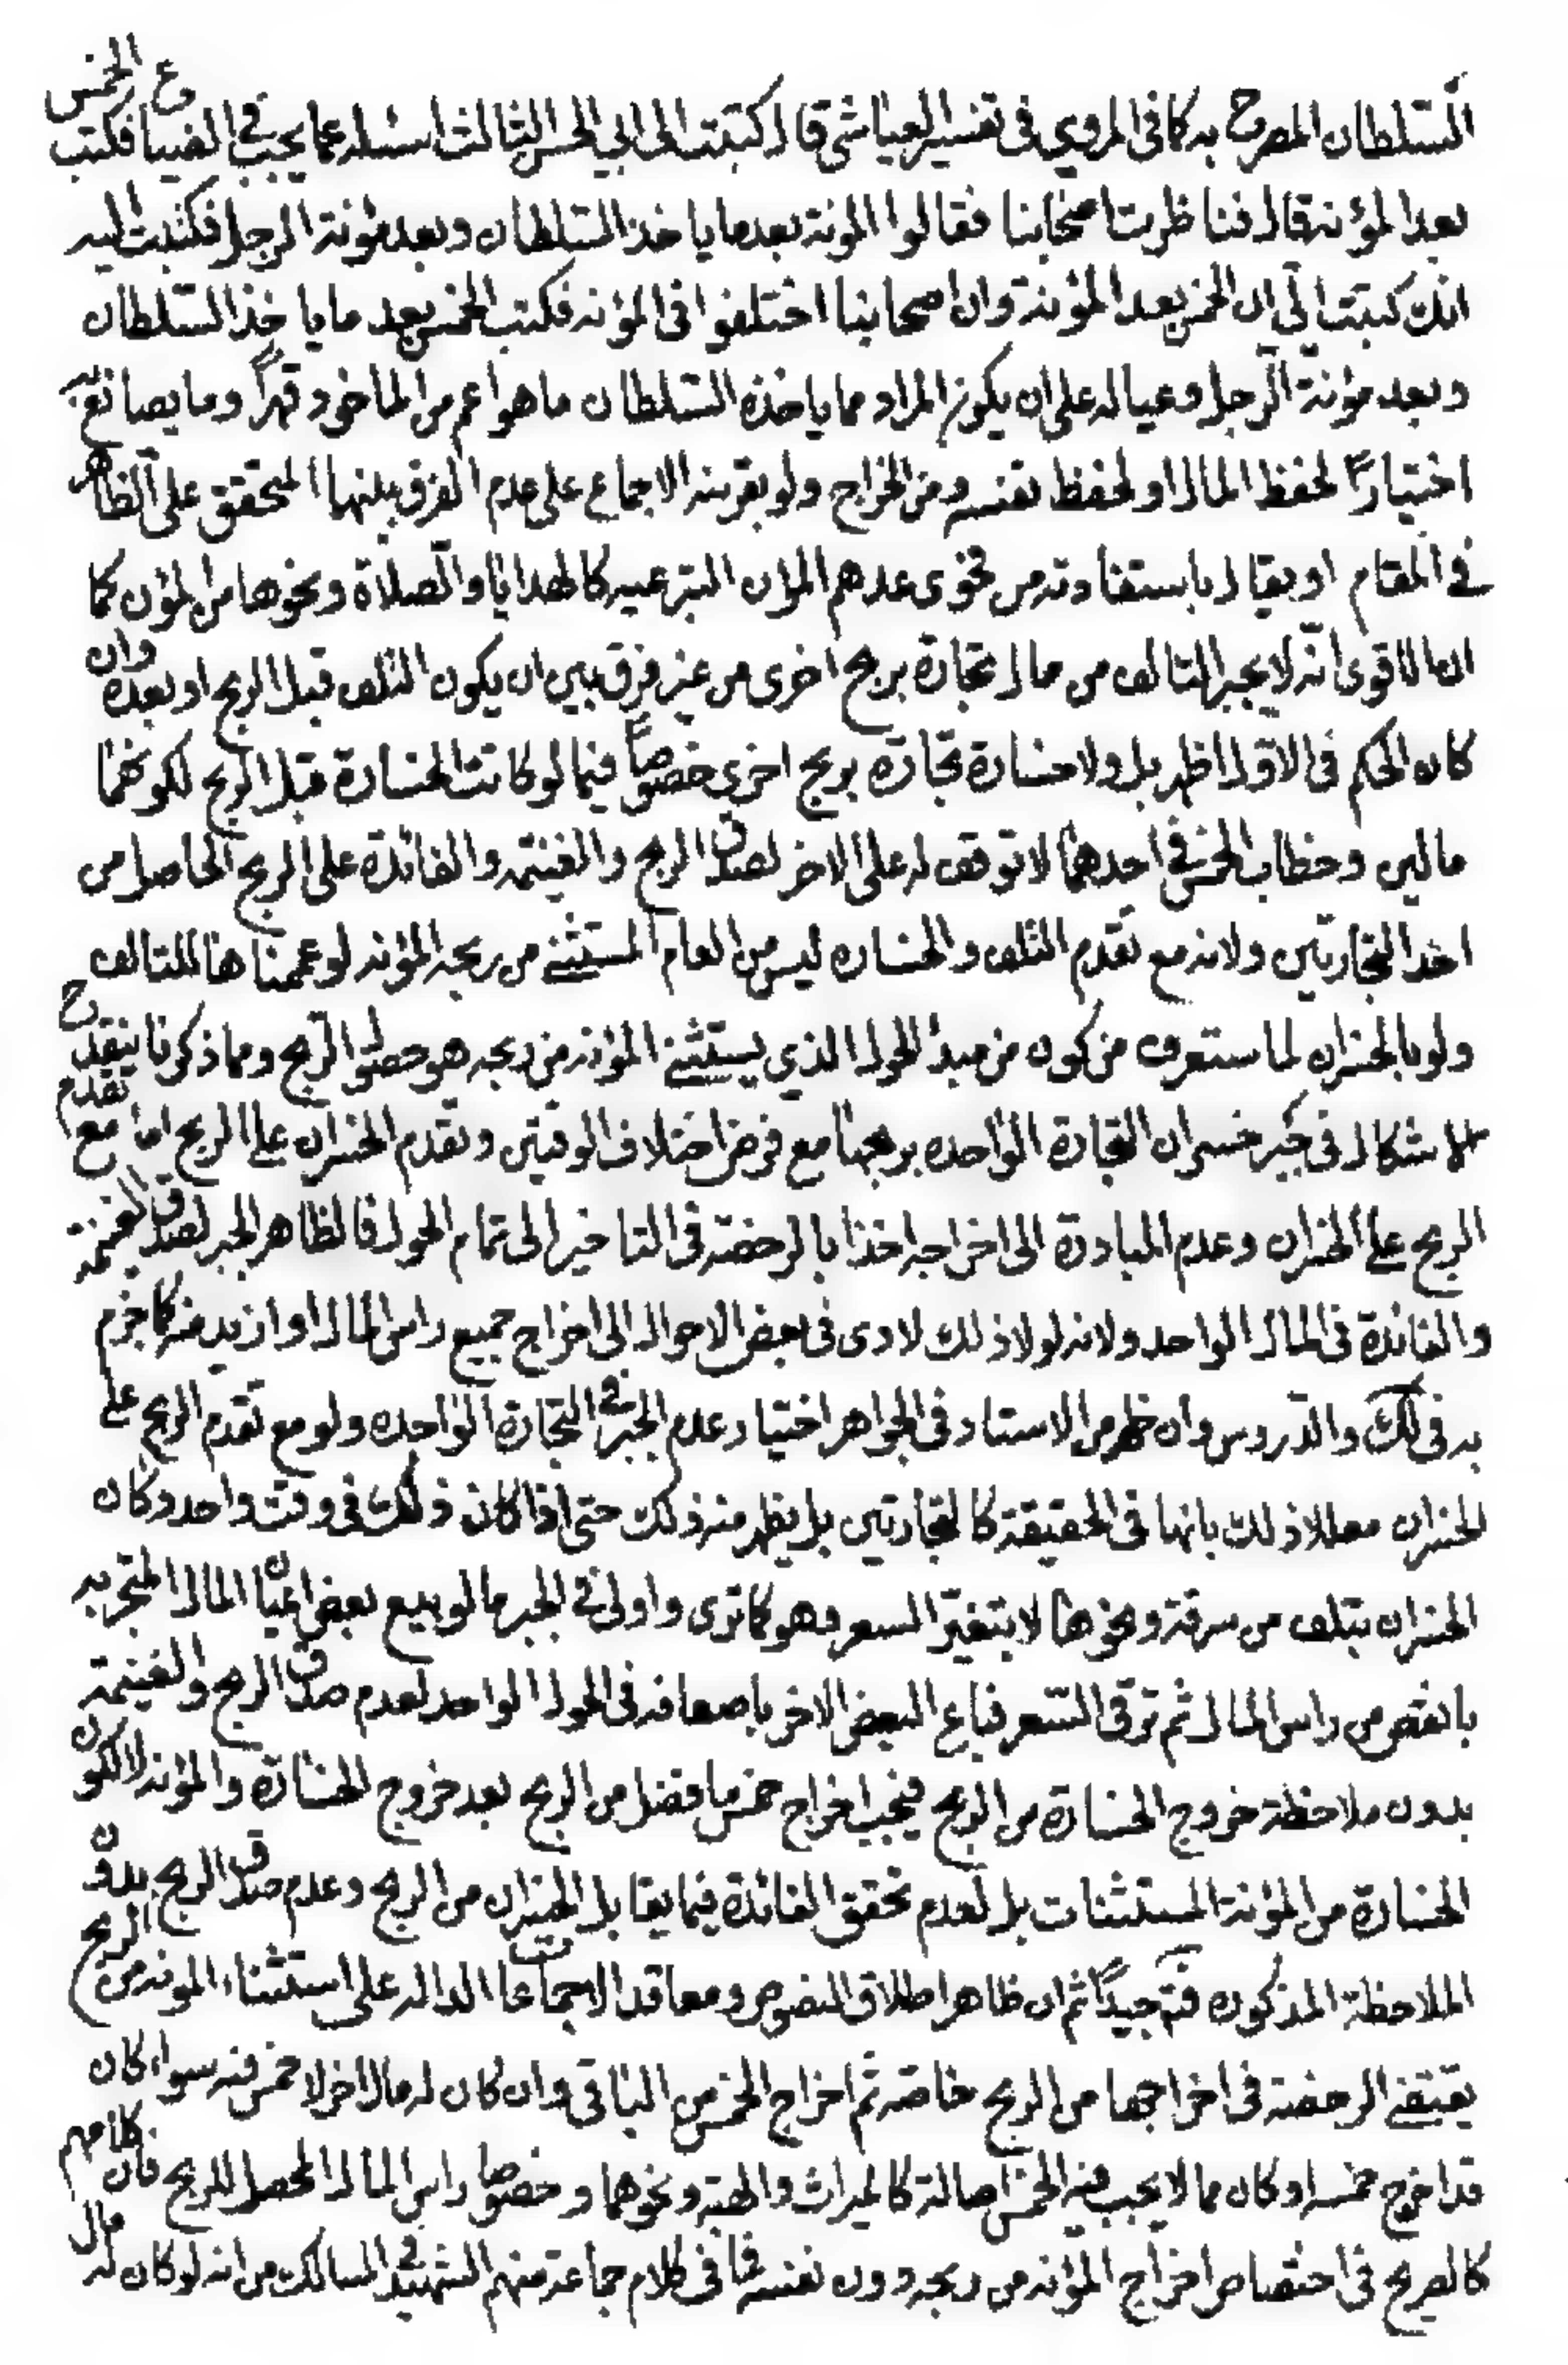 السّلطان المصرح به كما في المروي في تفسير العياشي قال كتبت الى ابي الحسن الثالث ع اسئله عما يجب في الضياع فكتب الخمس
بعد المؤنة قال فناظرت اصحابنا فقالوا المونة بعد ما ياخذ السّلطان وبعد مؤنة الرجل فكتبت اليه
انك كتبت الي ان الخمس بعد المؤنة وان اصحابنا اختلفوا في المؤنه فكتب الخمس بعد ما ياخذ السّلطان
وبعد مؤنة الرجل وعياله على ان يكون المراد مما ياخذه السّلطان ما هو اعم من الماخوذ قهراً وما يصانع به
اختياراً لحفظ المال او لحفظ نفسه ومن الخراج ولو بقرينة الاجماع على عدم الفرق بينها المتحقق على الظاهر
في المقام او يقال باستفادته من فحوى عدهم المؤن التبرعيه كالهدايا والصّلاة ونحوها من المؤن كما
ان الاقوى انّه لا يجبر التالف من مال تجارة بربح اخرى من غير فرق بين ان يكون التلف قبل الربح او بعده وان
كان الحكم في الاوّل اظهر بل ولا خسارة تجارة بربح اخرى خصوصاً فيما لو كانت الخسارة قبل الربح لكونهما
مالين وخطاب الخمس في احدهما لا توقف له على الاخر لصدق الربح والغنيمة والفائدة على الربح الحاصل من
احد التجارتين ولانه مع تقدم التلف والخساره ليس من العام المستثنى من ربحه المؤنه لو عممناها للتالف
ولو بالخسران لما ستعرف من كون من مبدأ الحول الذي يستثنى المؤنه من ربحه هو حصول الربح ومما ذكرنا ينقدح
الاشكال في جبر خسران التجارة الواحده بربحها مع فرض اختلاف الوقتين وتقدم الخسران على الربح اما مع تقدم
الربح على الخسران وعدم المبادرة الى اخراجه اخذا بالرخصة في التاخير الى تمام الحول فالظاهر الجبر لصدق الغنيمة
والفائدة في المال الواحد ولانه لولا ذلك لادى في بعض الاحوال الى اخراج جميع راس المال او ازيد منه كما جزم
به في لك والدّروس وان ظهر من الاستاد في الجواهر اختيار عدم الجبر في التجارة الواحده ولو مع تقدم الربح على
الخسران معللا ذلك بانها في الحقيقة كالتجارتين بل يظهر منه ذلك حتى اذا كان ذلك في وقت واحد وكان
الخسران بتلف من سرقة ونحوها لا بتغيّر السعر وهو كما ترى واولى في الجبر ما لو بيع بعض اعيان المال المتجر به
بانقص من راس المال ثم ترقى السّعر فباع البعض الاخر باضعافه في الحول الواحد لعدم صدق الربح والغنيمة
بدون ملاحظة خروج الخسارة من الربح فيجب اخراج خمس ما فضل من الربح بعد خروج الخسارة والمؤنه لا لكون
الخسارة من المؤنة المستثنات بل لعدم تحقق الفائدة فيما يقابل الخسران من الربح وعدم صدق الربح بدون
الملاحظة المذكوره فتم جيداً ثم ان ظاهر اطلاق النصوص ومعاقد الاجماعات الداله على استثناء المونه من الربح
يقتضي الرخصة في اخراجها من الربح خاصة ثم اخراج الخمس من الباقي وان كان له مال اخر لا خمس فيه سواء كان
قد اخرج خمسه او كان مما لا يجب فيه الخمس اصالة كالميراث والهبة ونحوهما وخصوصا راس المال المحصل للربح فان كلامهم
كالصريح في اختصاص اخراج المؤنه من ربحه دون نفسه فما في كلام جماعة منهم الشهيد في المسالك من انه لو كان له مال